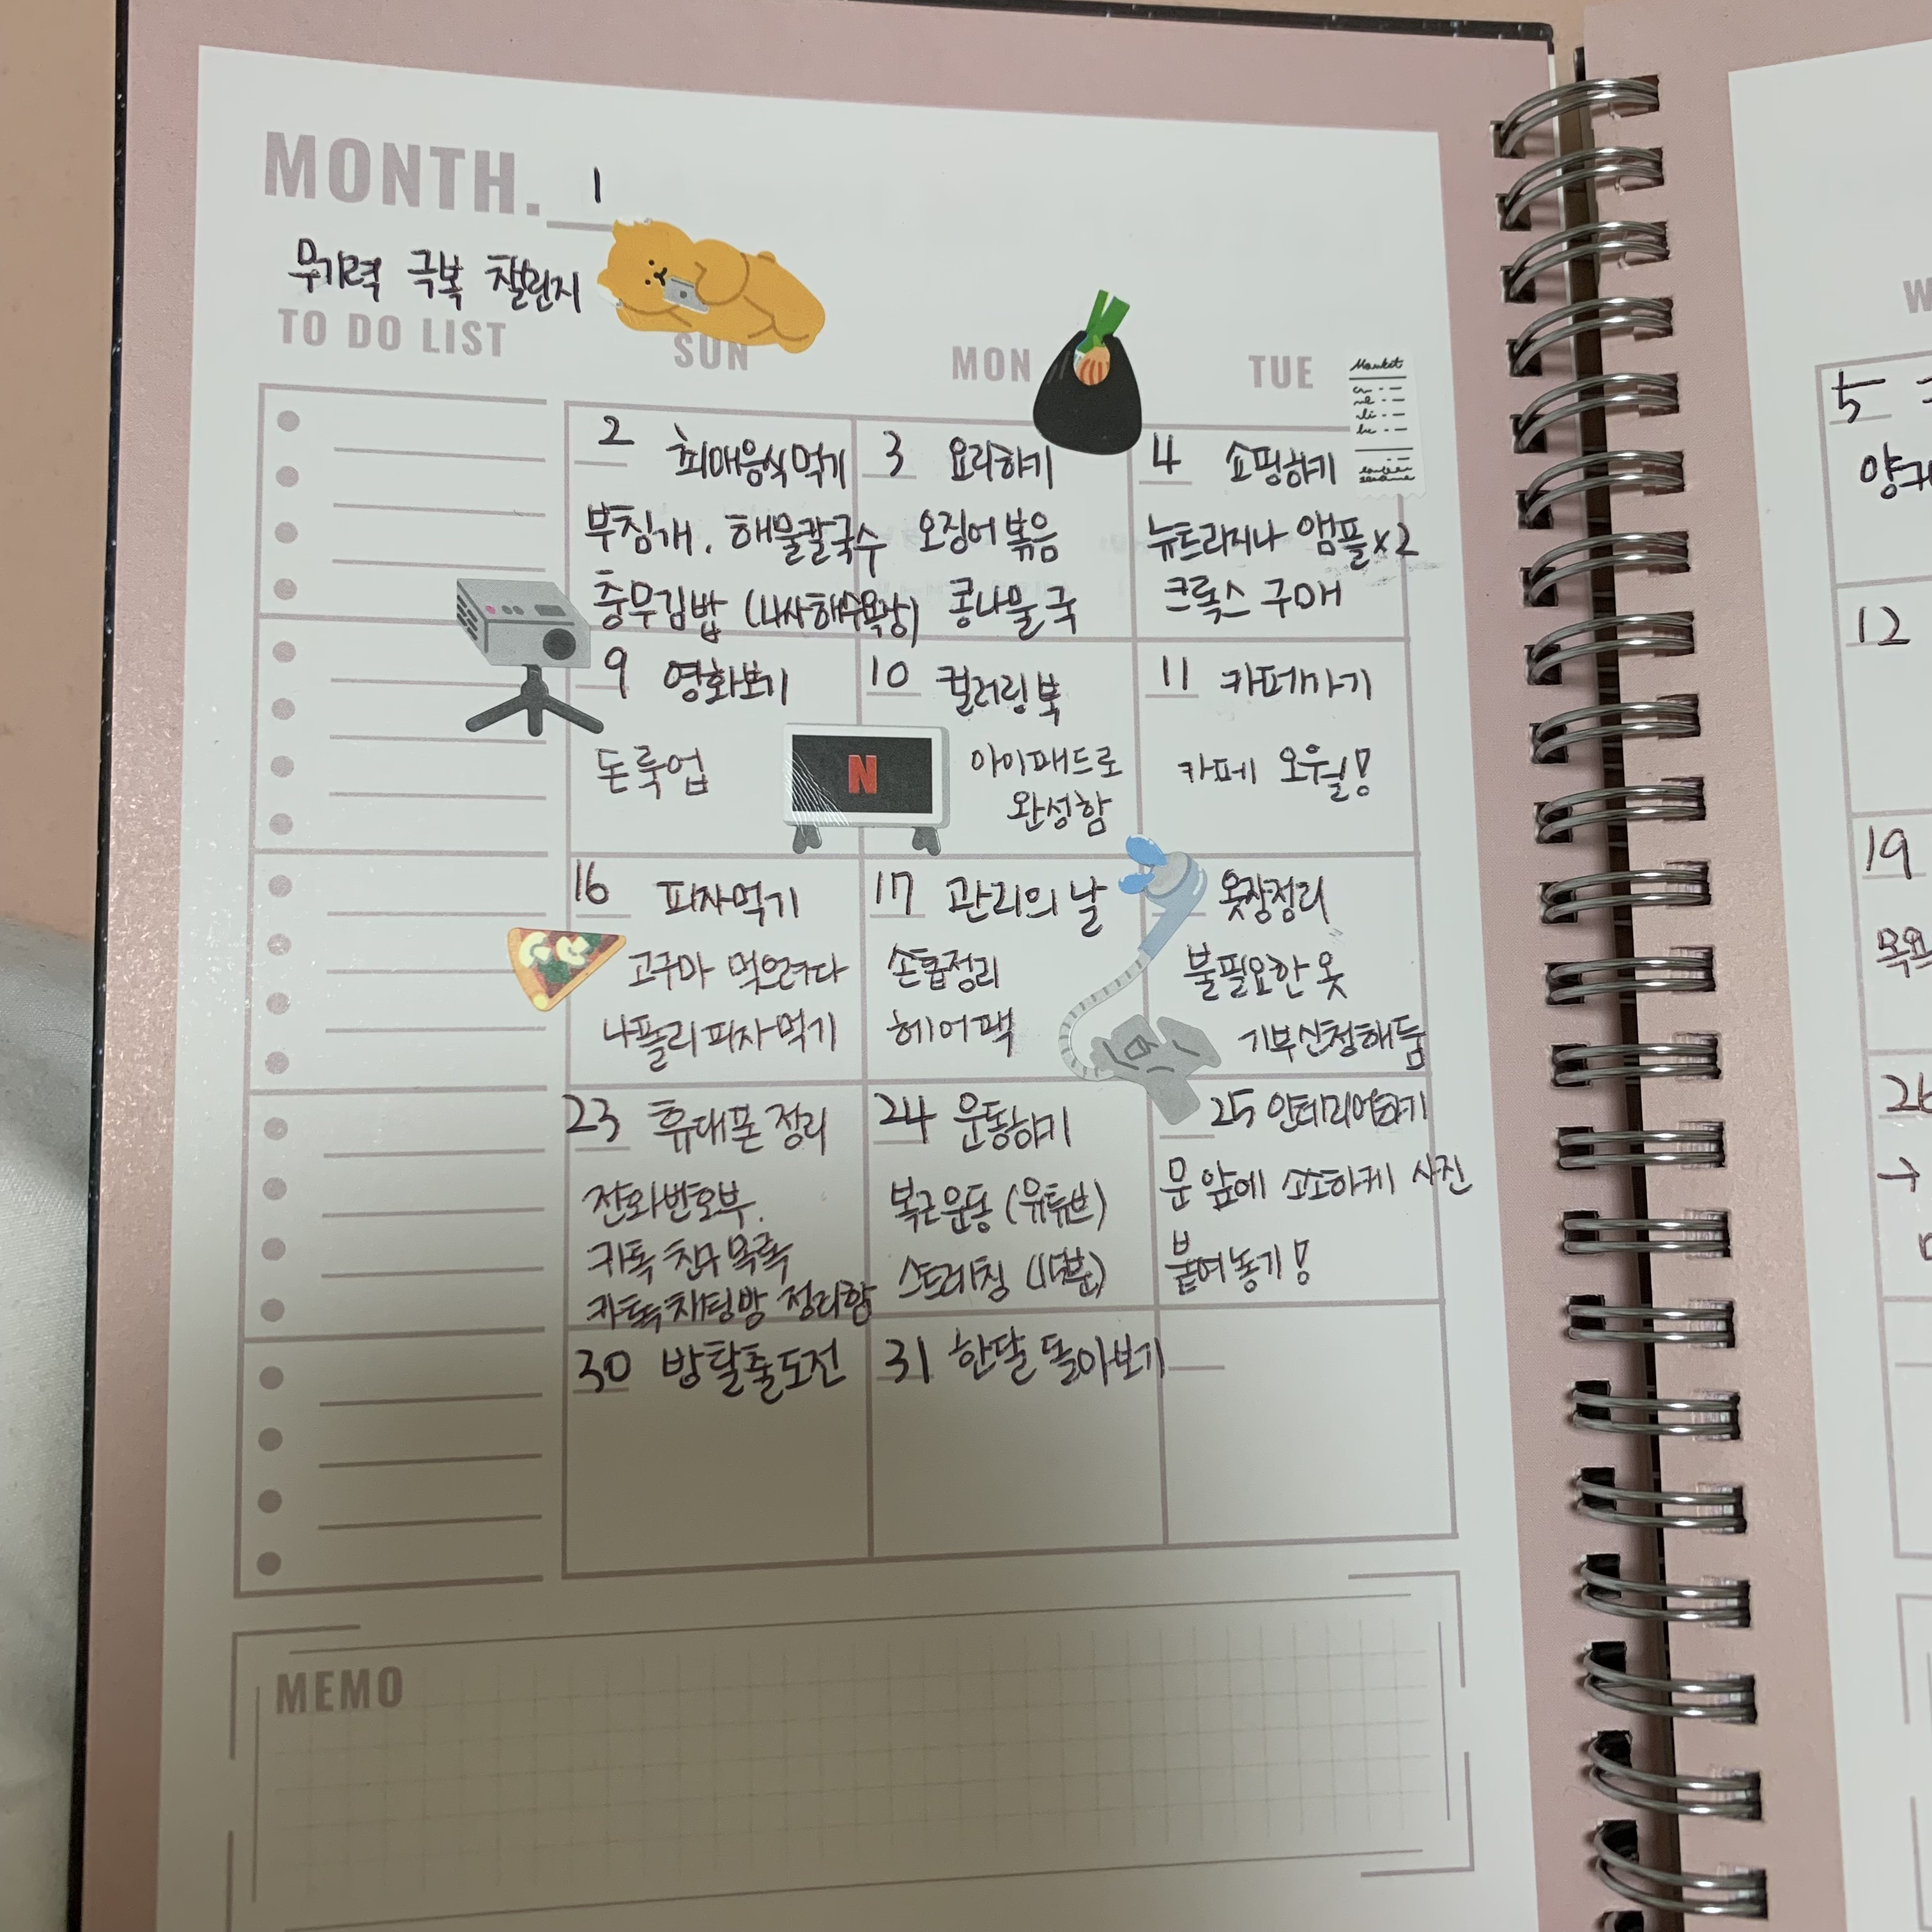 MONTH. 1
무기력 극복 챌린지
TO DO LIST
SUN
MON
TUE
Market
2 최애음식먹기
부침개, 해물칼국수
충무김밥 (나사해수욕장)
3 요리하기
오징어볶음
콩나물국
4 쇼핑하기
뉴트라지나 앰플x2
크록스 구매
9 영화보기
돈룩업
N
10 컬러링북
아이패드로
완성함
11 카페가기
카페 오월!
16 피자먹기
고구마 먹으려다
나폴리피자먹기
17 관리의 날
손톱정리
헤어팩
옷장정리
불필요한 옷
기부신청해둠
23 휴대폰 정리
전화번호부,
카톡 친구 목록
카톡채팅방 정리함
24 운동하기
복근운동 (유튜브)
스트레칭
25 인테리어하기
문 앞에 소소하게 사진
붙여놓기!
30 방탈출도전
31 한달 돌아보기
MEMO
W
5
12
19
26
→